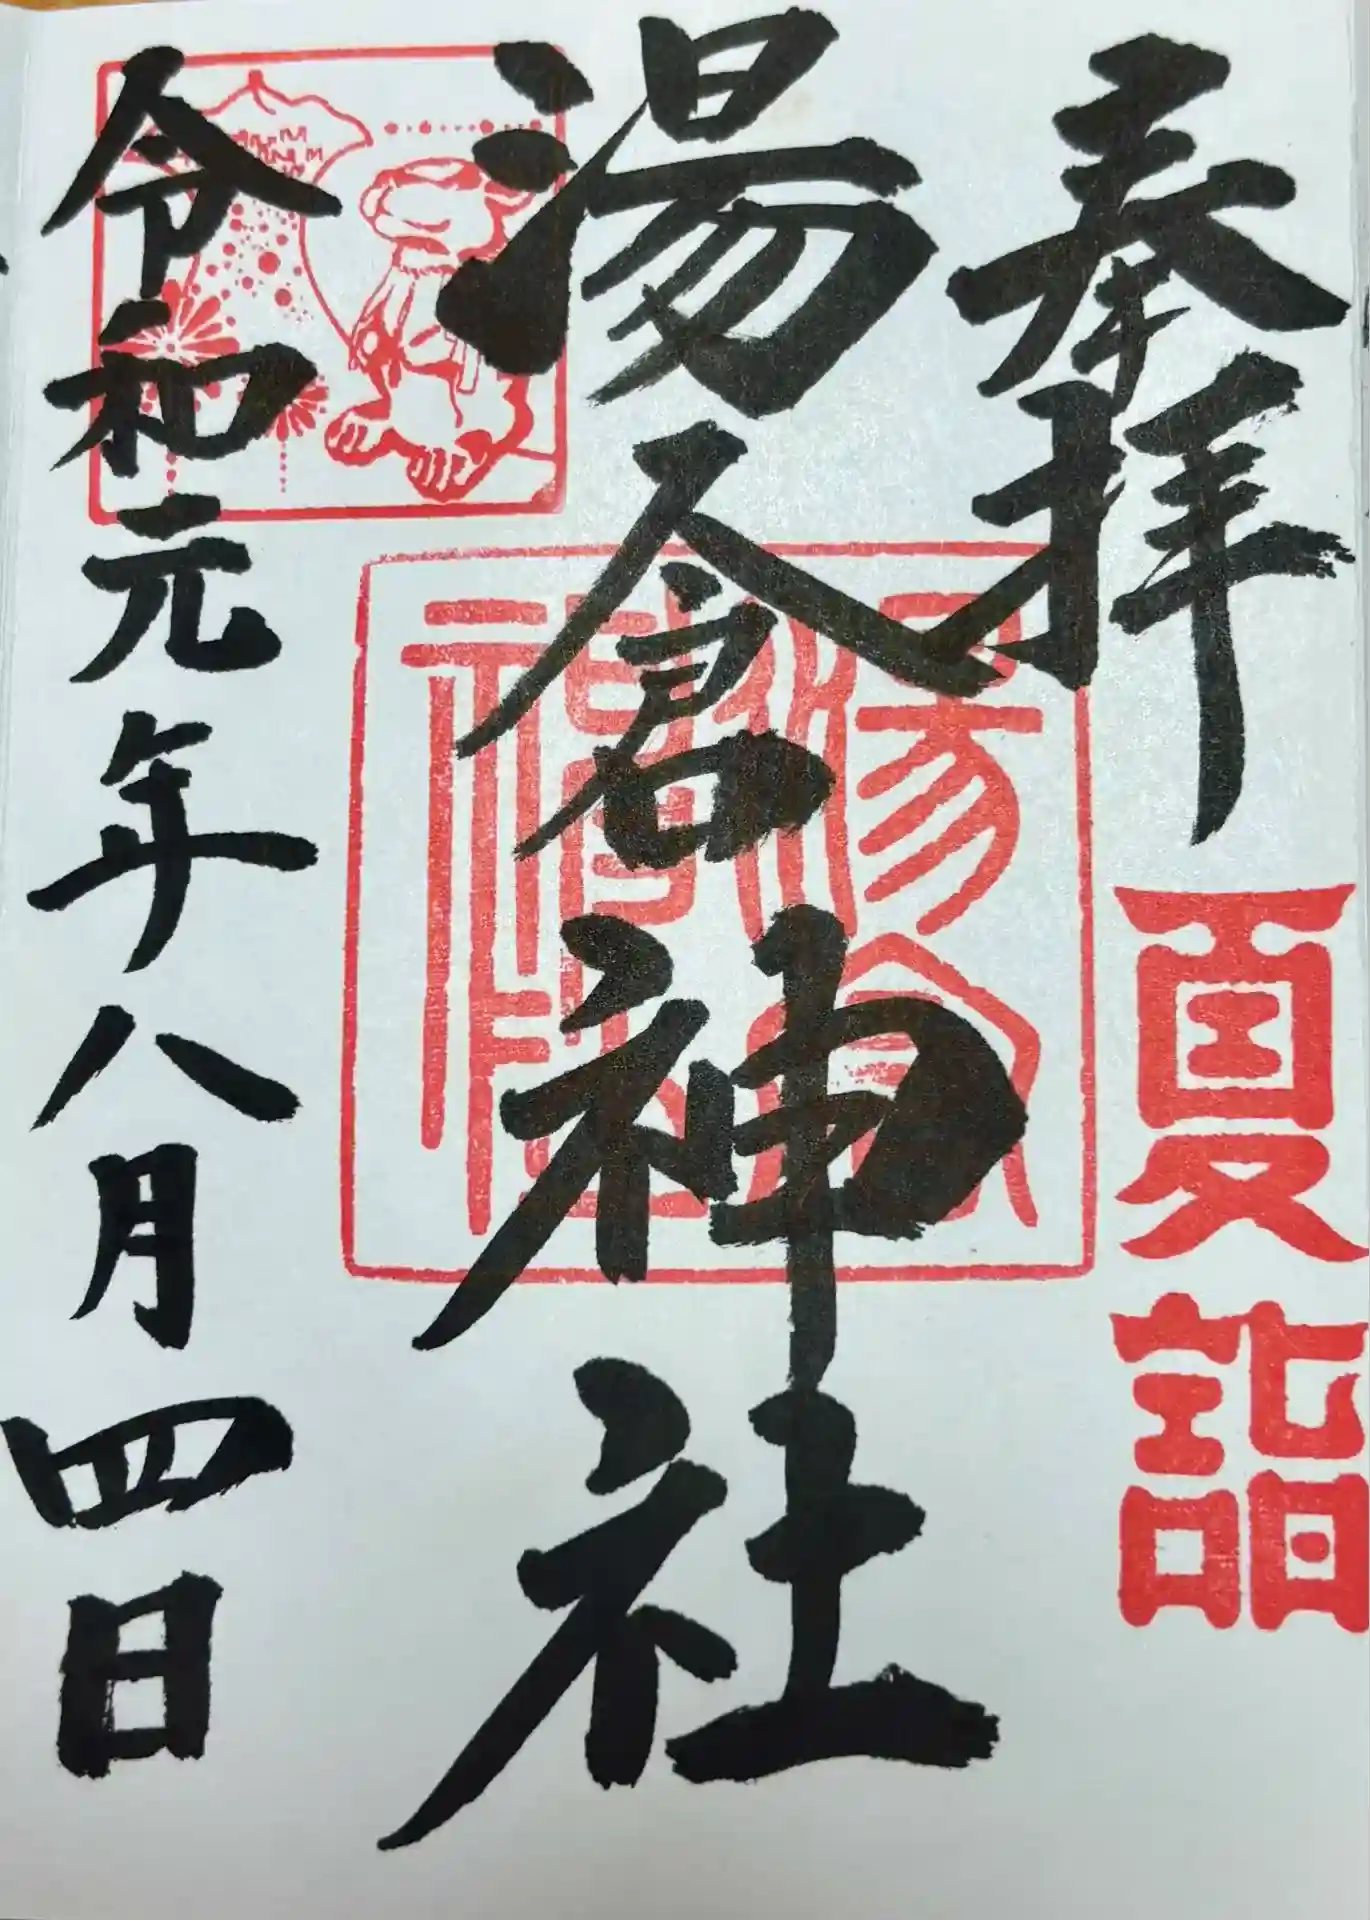 奉拝
夏詣
湯倉神社
令和元年八月四日